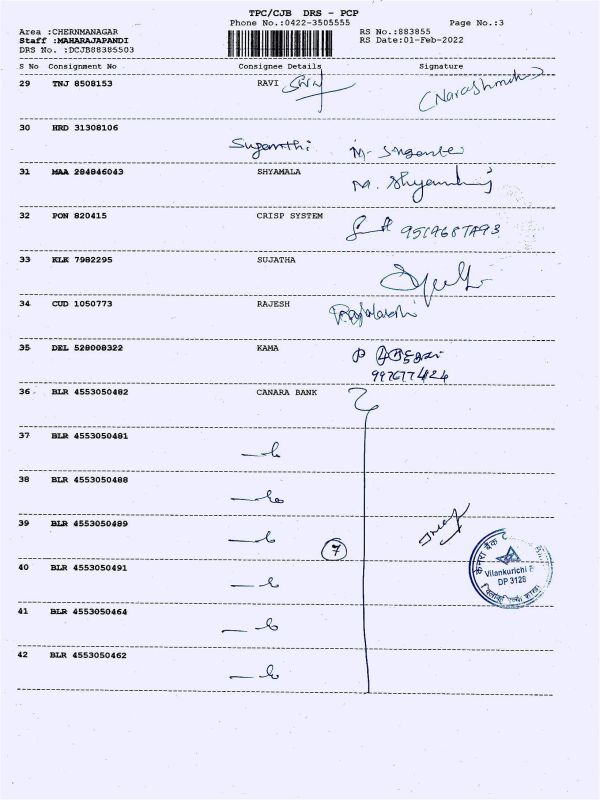 TPC/CJB DRS - PCP
Phone No.:0422-3505555 Page No.:3
Area :CHERNMANAGAR RS No.:883855
Staff :MAHARAJAPANDI RS Date:01-Feb-2022
DRS No. :DCJB88385503
S No Consignment No Consignee Details Signature
29 TNJ 8508153 RAVI
30 HRD 31308106
Suganthi
31 MAA 284846043 SHYAMALA
32 PON 820415 CRISP SYSTEM
33 KLK 7982295 SUJATHA
34 CUD 1050773 RAJESH
35 DEL 528008322 KAMA
36 BLR 4553050482 CANARA BANK
37 BLR 4553050481
38 BLR 4553050488
39 BLR 4553050489
7
40 BLR 4553050491
41 BLR 4553050464
42 BLR 4553050462
केनरा बैंक
Vilankurichi
DP 3128